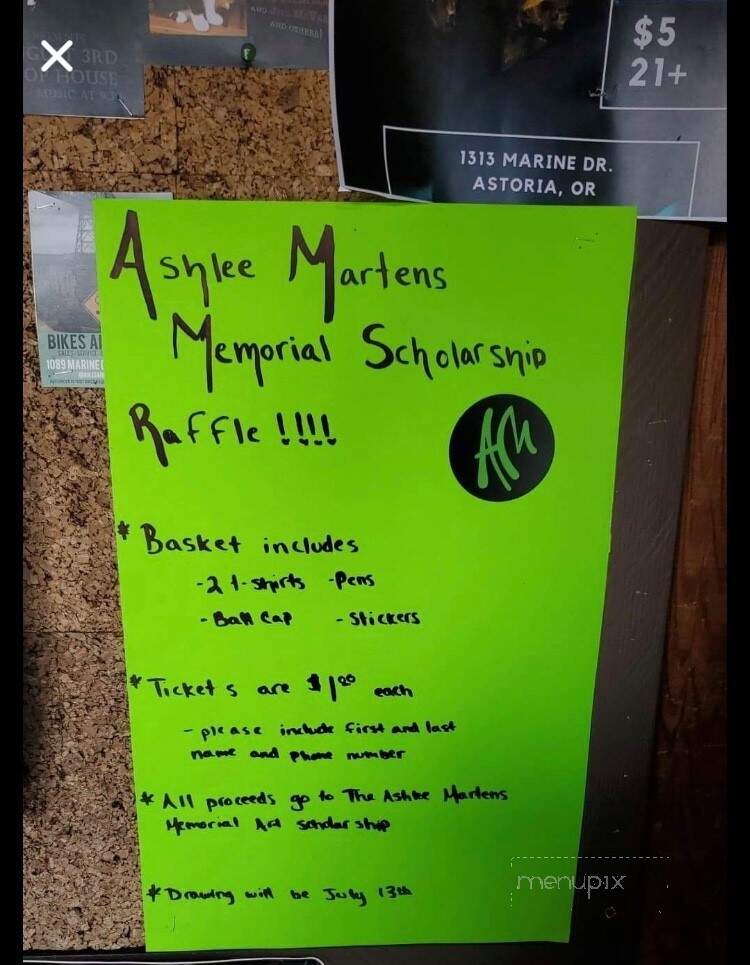 3RD
OF HOUSE
MUSIC AT
$5
21+
1313 MARINE DR.
ASTORIA, OR
BIKES
1089 MARINE
Ashlee Martens
Memorial Scholarship
Raffle !!!!
AM
* Basket includes
- 2 t-shirts - Pens
- Ball Cap - Stickers
* Tickets are $1.00 each
- please include first and last
name and phone number
* All proceeds go to The Ashlee Martens
Memorial Art scholarship
* Drawing will be July 13th
menupix